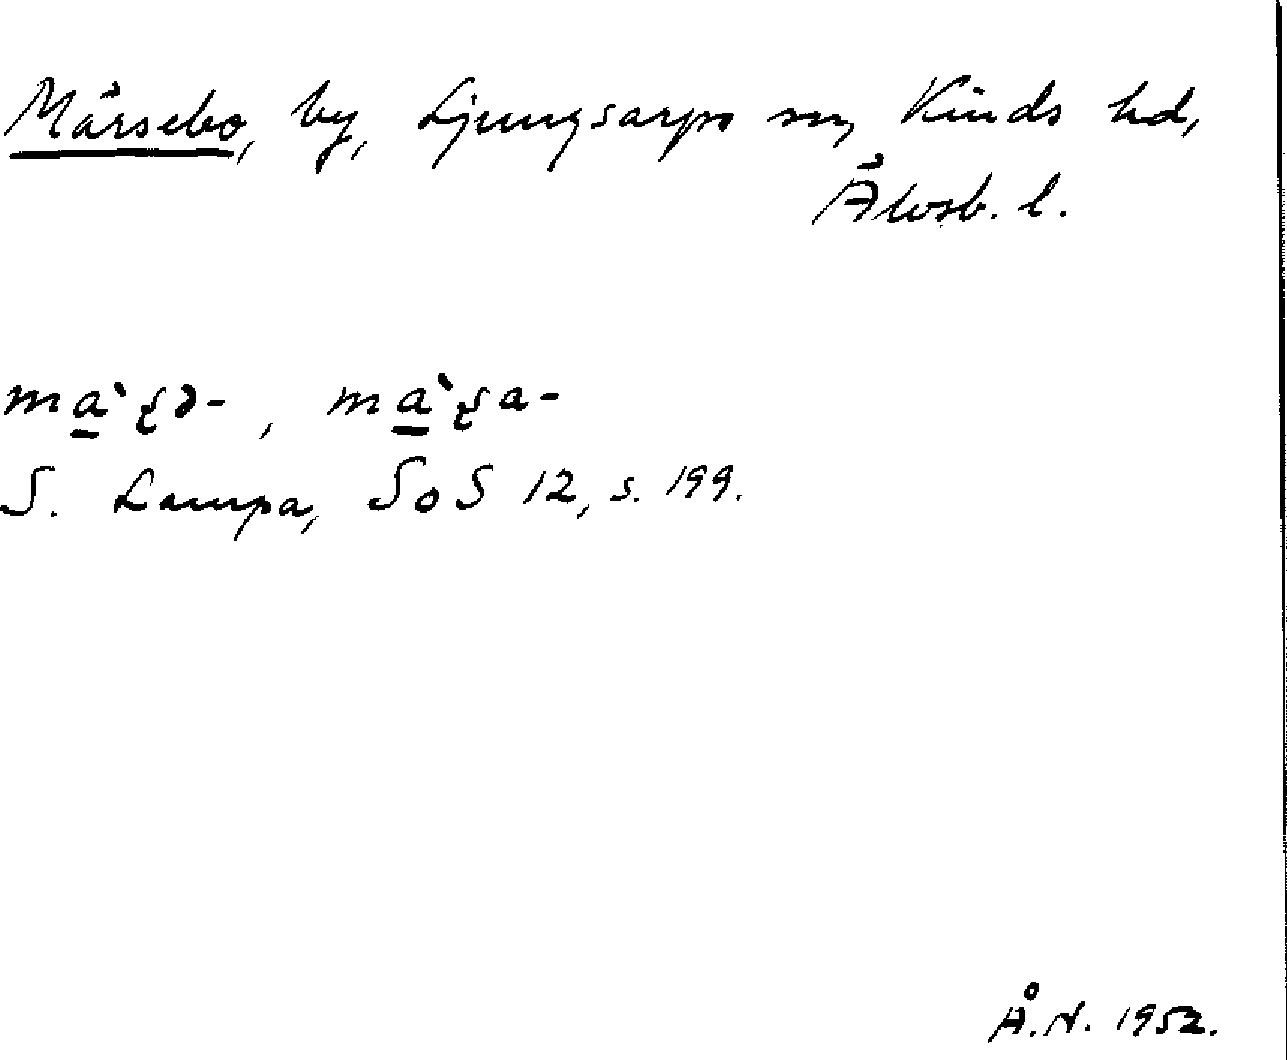 Mårsebo, by, Ljungsarps sn, Kinds hd,
Älvsb. l.
ma̲`ʂə-, ma̲`ʂa-
S. Lampa, SoS 12, s. 199.
Å.N. 1952.